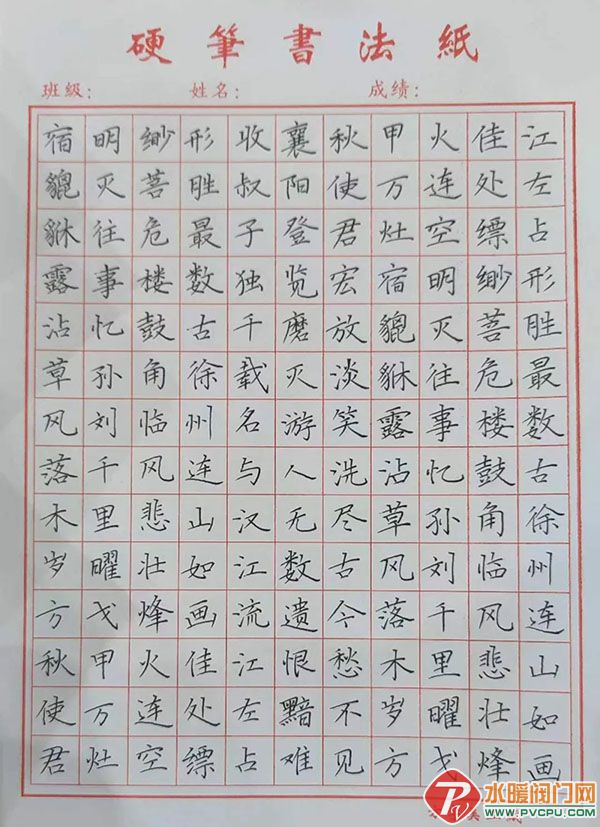 硬筆書法紙
班級： 姓名： 成绩：
江左占形胜最数古徐州连山如画
佳处缥缈菩危楼鼓角临风悲壮烽
火连空明灭往事忆孙刘千里曜戈
甲万灶宿貔貅露沾草风落木岁方
秋使君宏放淡笑洗尽古今愁不见
襄阳登览磨灭游人无数遗恨黯难
收叔子独千载名与汉江流江左占
形胜最数古徐州连山如画佳处缥
缈菩危楼鼓角临风悲壮烽火连空
明灭往事忆孙刘千里曜戈甲万灶
宿貔貅露沾草风落木岁方秋使君
水暖阀门网
WWW.PVCPU.COM